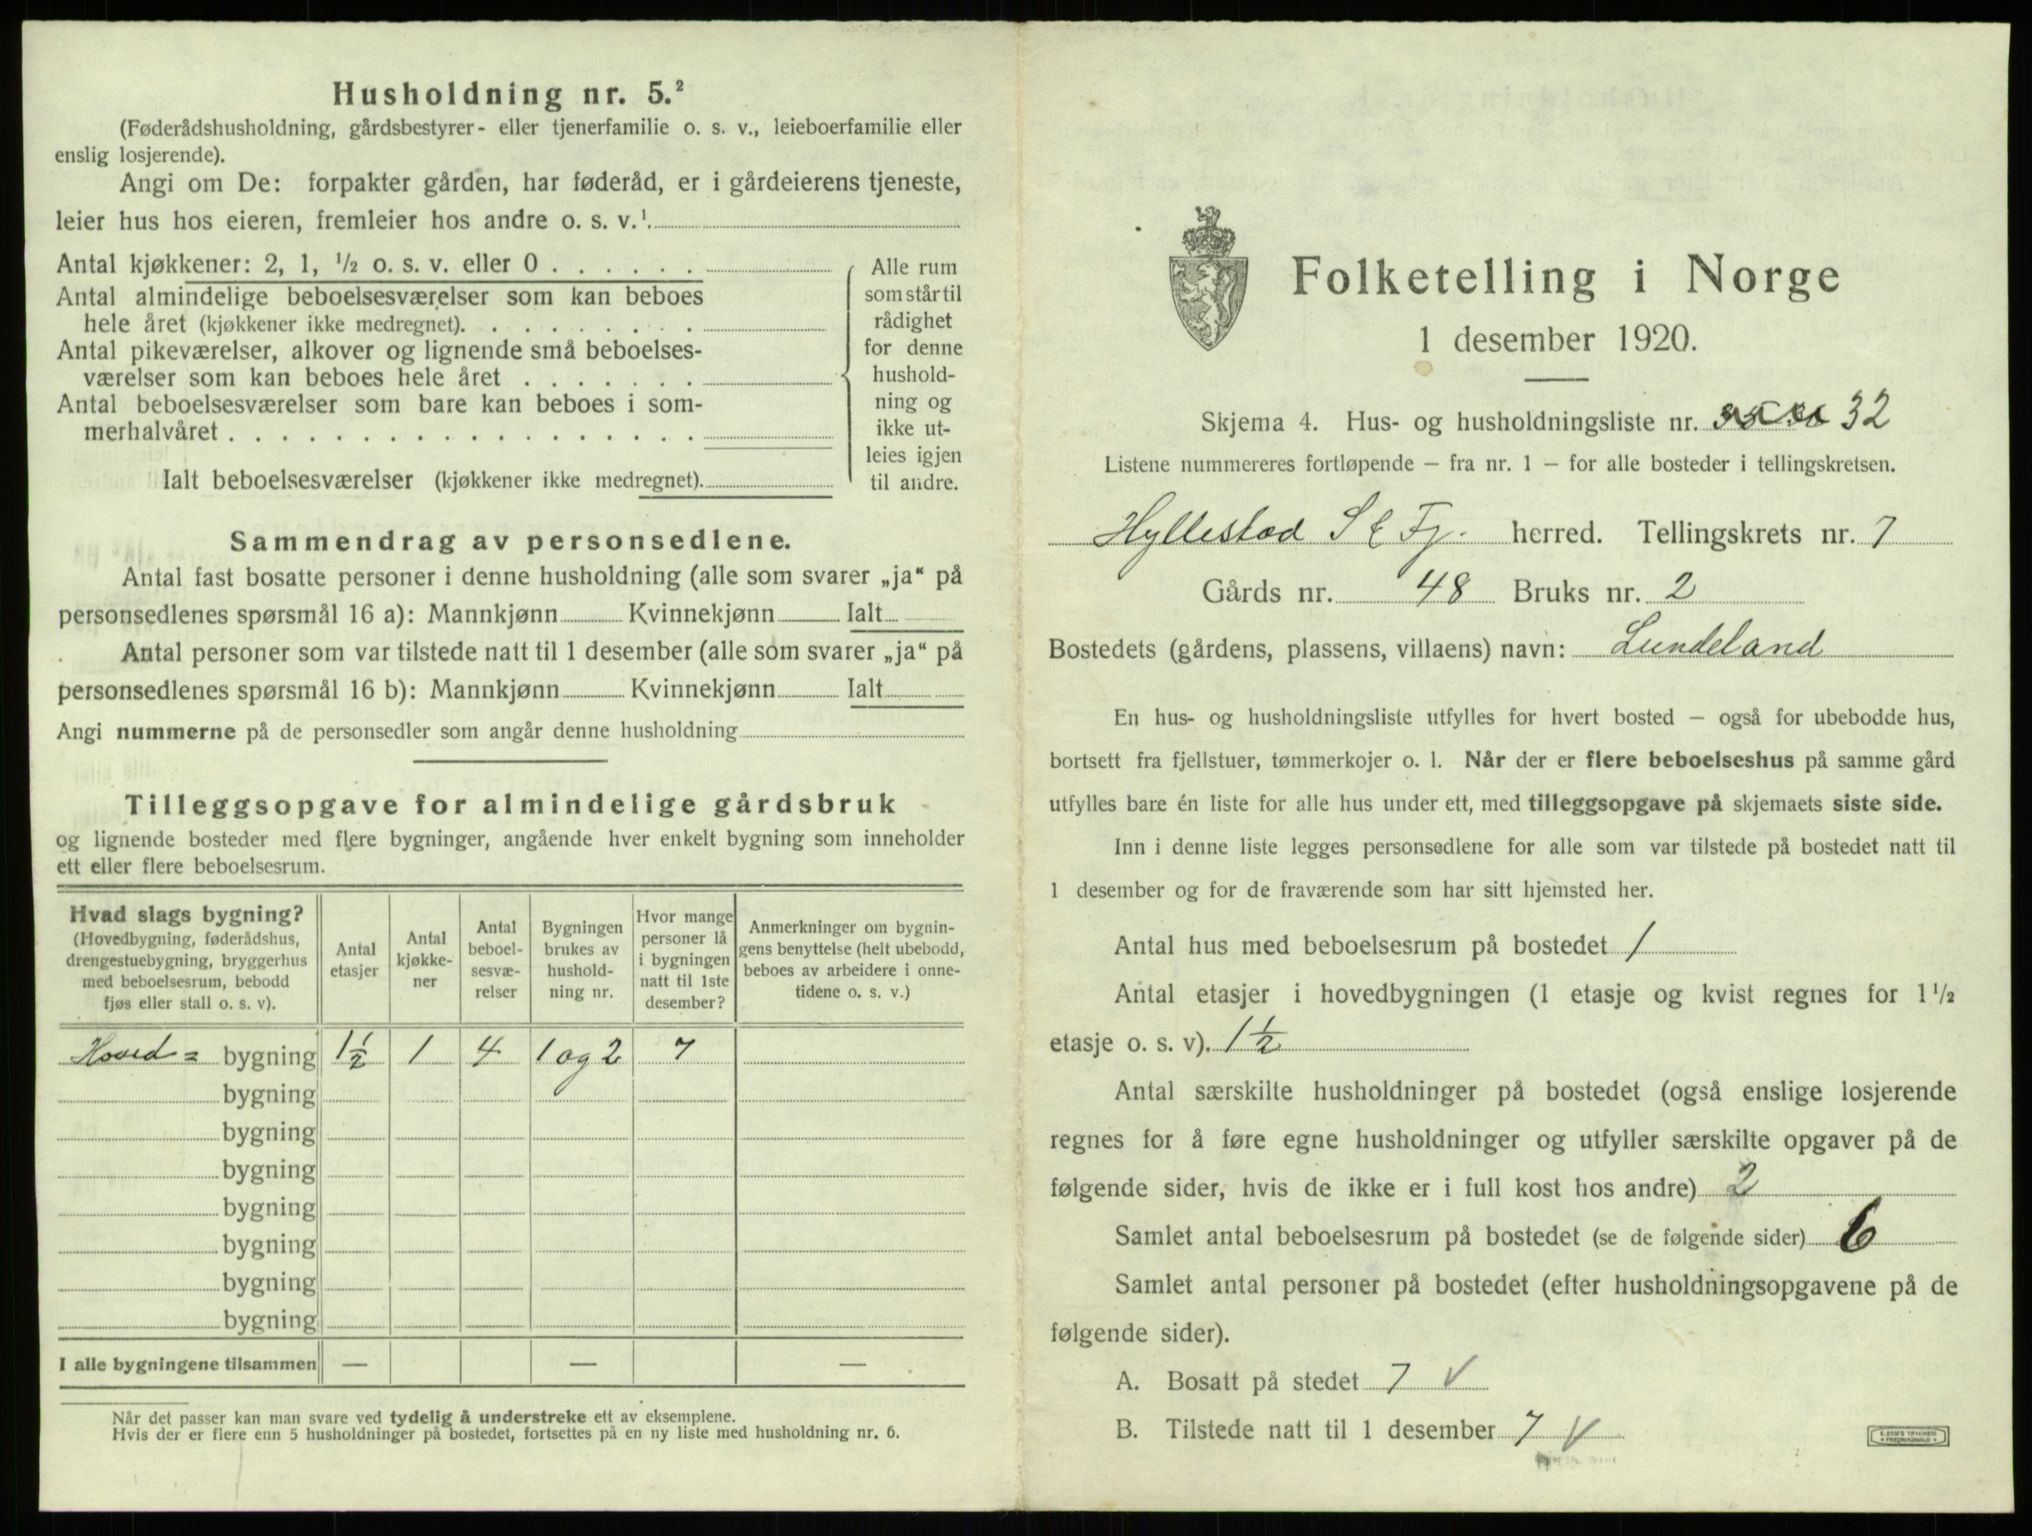 Husholdning nr. 5.²
(Føderådshusholdning, gårdsbestyrer- eller tjenerfamilie o. s. v., leieboerfamilie eller
enslig losjerende).
Angi om De: forpakter gården, har føderåd, er i gårdeierens tjeneste,
leier hus hos eieren, fremleier hos andre o. s. v.¹
Antal kjøkkener: 2, 1, ½ o. s. v. eller 0
Antal almindelige beboelsesværelser som kan beboes
hele året (kjøkkener ikke medregnet).
Antal pikeværelser, alkover og lignende små beboelses-
værelser som kan beboes hele året
Antal beboelsesværelser som bare kan beboes i som-
merhalvåret
Ialt beboelsesværelser (kjøkkener ikke medregnet).
Alle rum
som står til
rådighet
for denne
hushold-
ning og
ikke ut-
leies igjen
til andre.
Sammendrag av personsedlene.
Antal fast bosatte personer i denne husholdning (alle som svarer „ja“ på
personsedlenes spørsmål 16 a): Mannkjønn Kvinnekjønn Ialt
Antal personer som var tilstede natt til 1 desember (alle som svarer „ja“ på
personsedlenes spørsmål 16 b): Mannkjønn Kvinnekjønn Ialt
Angi nummerne på de personsedler som angår denne husholdning
Tilleggsopgave for almindelige gårdsbruk
og lignende bosteder med flere bygninger, angående hver enkelt bygning som inneholder
ett eller flere beboelsesrum.
Hvad slags bygning?
(Hovedbygning, føderådshus,
drengestuebygning, bryggerhus
med beboelsesrum, bebodd
fjøs eller stall o. s. v).
Antal
etasjer
Antal
kjøkke-
ner
Antal
beboel-
sesvæ-
relser
Bygningen
brukes av
hushold-
ning nr.
Hvor mange
personer lå
i bygningen
natt til 1ste
desember?
Anmerkninger om bygnin-
gens benyttelse (helt ubebodd,
beboes av arbeidere i onne-
tidene o. s. v.)
Hoved= bygning 1½ 1 4 1 og 2 7
bygning
bygning
bygning
bygning
bygning
bygning
bygning
I alle bygningene tilsammen — — —
Når det passer kan man svare ved tydelig å understreke ett av eksemplene.
Hvis der er flere enn 5 husholdninger på bostedet, fortsettes på en ny liste med husholdning nr. 6.
Folketelling i Norge
1 desember 1920.
Skjema 4. Hus- og husholdningsliste nr. 32
Listene nummereres fortløpende – fra nr. 1 – for alle bosteder i tellingskretsen.
Hyllestad S & Fj. herred. Tellingskrets nr. 7
Gårds nr. 48 Bruks nr. 2
Bostedets (gårdens, plassens, villaens) navn: Lundeland
En hus- og husholdningsliste utfylles for hvert bosted – også for ubebodde hus,
bortsett fra fjellstuer, tømmerkojer o. l. Når der er flere beboelseshus på samme gård
utfylles bare én liste for alle hus under ett, med tilleggsopgave på skjemaets siste side.
Inn i denne liste legges personsedlene for alle som var tilstede på bostedet natt til
1 desember og for de fraværende som har sitt hjemsted her.
Antal hus med beboelsesrum på bostedet 1
Antal etasjer i hovedbygningen (1 etasje og kvist regnes for 1½
etasje o. s. v). 1½
Antal særskilte husholdninger på bostedet (også enslige losjerende
regnes for å føre egne husholdninger og utfyller særskilte opgaver på de
følgende sider, hvis de ikke er i full kost hos andre) 2
Samlet antal beboelsesrum på bostedet (se de følgende sider) 6
Samlet antal personer på bostedet (efter husholdningsopgavene på de
følgende sider).
A. Bosatt på stedet 7 ✓
B. Tilstede natt til 1 desember 7 ✓